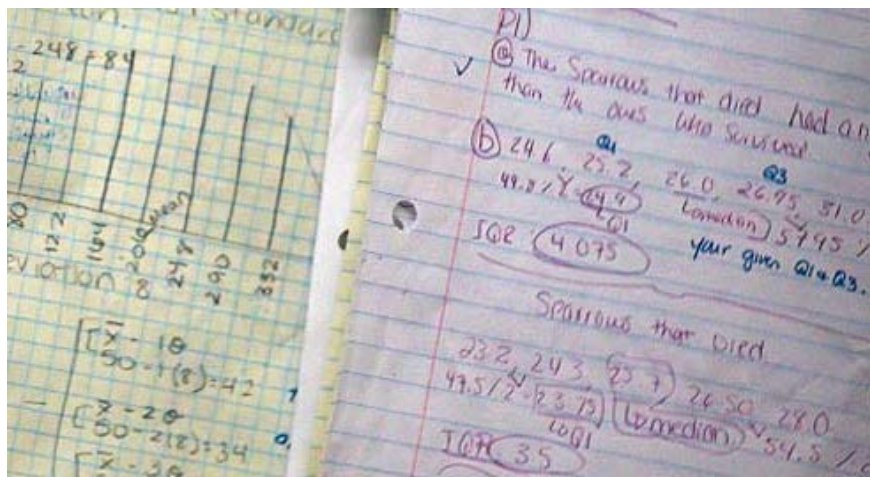 Standard
- 248 = 84
2
80
122
164
206
mean
248
290
332
eviation 8
x̄ - 1σ
50 - 1(8) = 42
x̄ - 2σ
50 - 2(8) = 34
P1)
✓ (a) The Sparrows that died had an
than the ones who survived.
Q1 Q3
(b) 24.6, 25.2, 26.0, 26.95, 31.0
49.8 / 2 = 24.9 Lomedian 57.95 /
Q1 your given Q1 & Q3.
IQR 4.075
Sparrows that Died
23.2, 24.3, 25.7, 26.50, 28.0
47.5 / 2 = 23.75 Lomedian 54.5 /
LoQ1
IQR 3.5